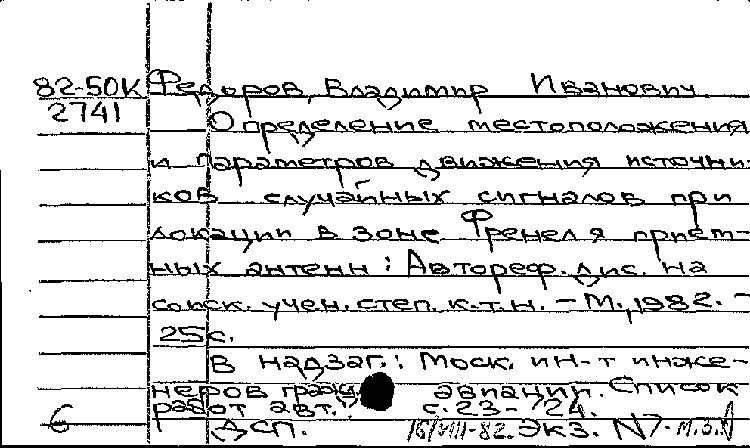 82-50К Федоров, Владимир Иванович.
2741 Определение местоположения
и параметров движения источни-
ков случайных сигналов при
локации в зоне Френеля прием-
ных антенн : Автореф. дис. на
соиск. учен. степ. к.т.н. – М., 1982. –
25 с.
В надзаг.: Моск. ин-т инже-
неров гражд. авиации. Список
работ авт.: с. 23-24.
6 ДСП. 16/VIII-82. Экз. N7-